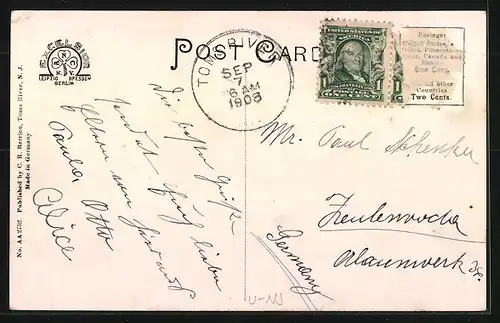 POST CARD
EXCELSIOR
N.Y.
LEIPZIG DRESDEN
BERLIN
TOMS RIVER
SEP
7
6 AM
1908
1
Postage:
United States,
Canada and
Mexico
One Cent.
All other
Countries
Two Cents.
No. AA Published by C. B. Toms River, N. J.
Made in Germany
Die besten Grüße
sendet Euch lieben
Eltern von hier aus
Paula Otto
Alice
Mr. Paul Schenker
Zeulenroda
Alaunwerk
Germany
U-NJ